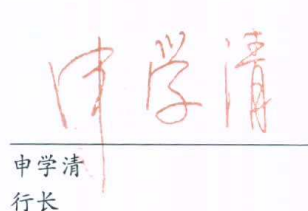 申学清
申学清
行长